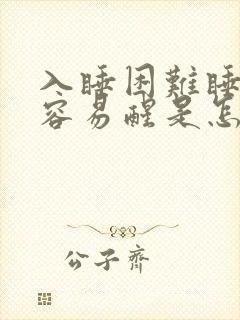 入睡困难睡
容易醒是怎
公子齐